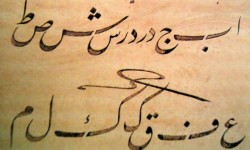 ا ب ج د ر درس ش ص ط
ع ف ق گ ک ل م